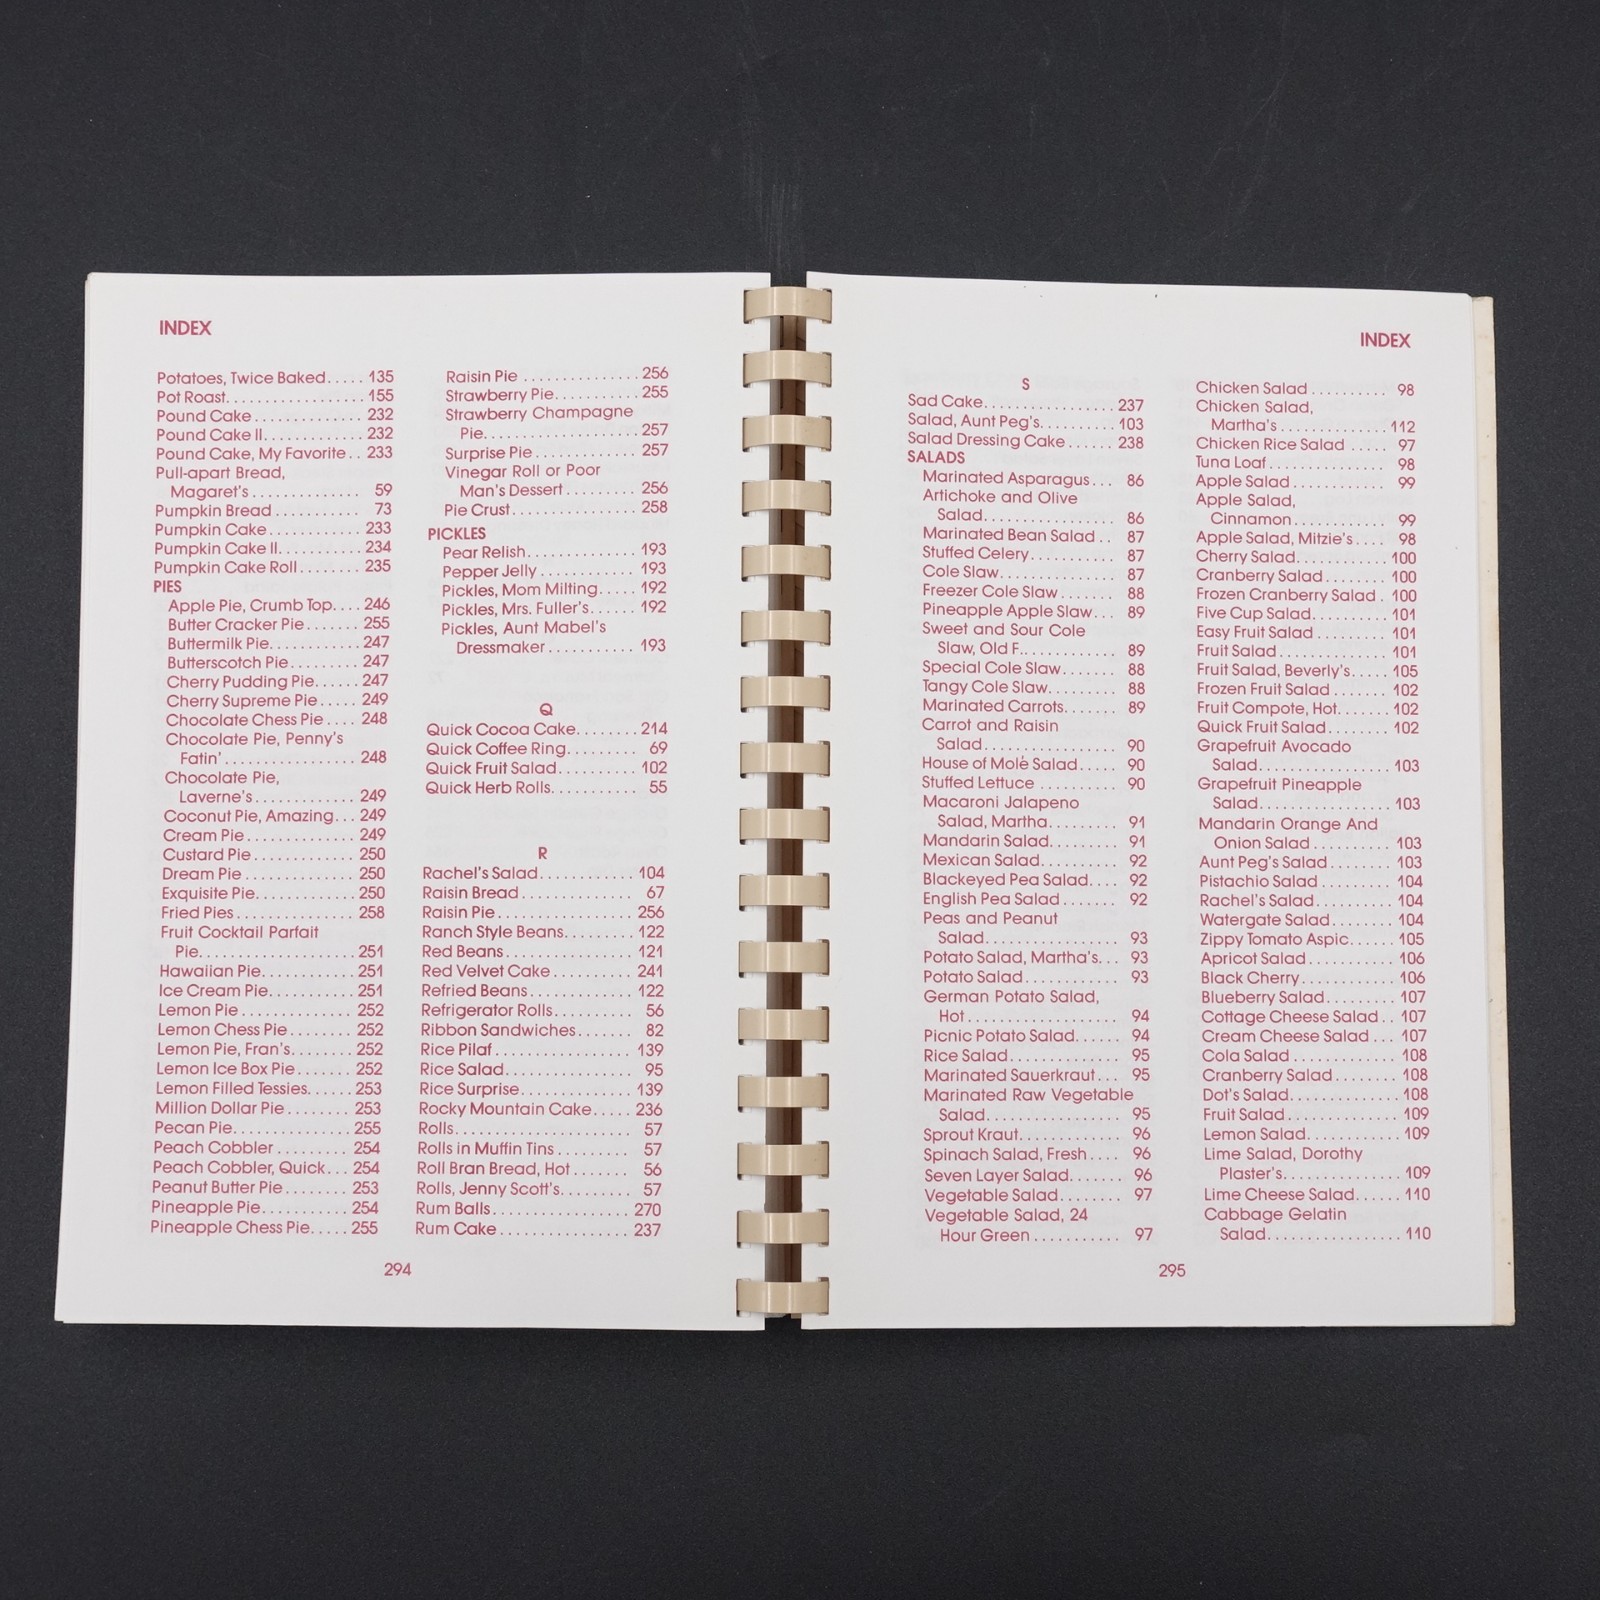 INDEX
Potatoes, Twice Baked..... 135
Pot Roast.................. 155
Pound Cake............... 232
Pound Cake II............. 232
Pound Cake, My Favorite.. 233
Pull-apart Bread,
Magaret's............... 59
Pumpkin Bread............ 73
Pumpkin Cake............. 233
Pumpkin Cake II........... 234
Pumpkin Cake Roll........ 235
PIES
Apple Pie, Crumb Top.... 246
Butter Cracker Pie....... 255
Buttermilk Pie............ 247
Butterscotch Pie.......... 247
Cherry Pudding Pie...... 247
Cherry Supreme Pie..... 249
Chocolate Chess Pie.... 248
Chocolate Pie, Penny's
Fatin'.................. 248
Chocolate Pie,
Laverne's.............. 249
Coconut Pie, Amazing... 249
Cream Pie............... 249
Custard Pie.............. 250
Dream Pie............... 250
Exquisite Pie............. 250
Fried Pies................ 258
Fruit Cocktail Parfait
Pie..................... 251
Hawaiian Pie............. 251
Ice Cream Pie............ 251
Lemon Pie............... 252
Lemon Chess Pie........ 252
Lemon Pie, Fran's........ 252
Lemon Ice Box Pie....... 252
Lemon Filled Tessies...... 253
Million Dollar Pie......... 253
Pecan Pie................ 255
Peach Cobbler.......... 254
Peach Cobbler, Quick... 254
Peanut Butter Pie........ 253
Pineapple Pie............ 254
Pineapple Chess Pie..... 255
Raisin Pie............... 256
Strawberry Pie........... 255
Strawberry Champagne
Pie..................... 257
Surprise Pie.............. 257
Vinegar Roll or Poor
Man's Dessert......... 256
Pie Crust................. 258
PICKLES
Pear Relish............... 193
Pepper Jelly............. 193
Pickles, Mom Milting...... 192
Pickles, Mrs. Fuller's....... 192
Pickles, Aunt Mabel's
Dressmaker........... 193
Q
Quick Cocoa Cake........ 214
Quick Coffee Ring......... 69
Quick Fruit Salad.......... 102
Quick Herb Rolls........... 55
R
Rachel's Salad............ 104
Raisin Bread.............. 67
Raisin Pie................. 256
Ranch Style Beans......... 122
Red Beans................ 121
Red Velvet Cake.......... 241
Refried Beans............. 122
Refrigerator Rolls.......... 56
Ribbon Sandwiches........ 82
Rice Pilaf.................. 139
Rice Salad................ 95
Rice Surprise.............. 139
Rocky Mountain Cake..... 236
Rolls...................... 57
Rolls in Muffin Tins......... 57
Roll Bran Bread, Hot....... 56
Rolls, Jenny Scott's........ 57
Rum Balls................. 270
Rum Cake................ 237
294
INDEX
S
Sad Cake................ 237
Salad, Aunt Peg's......... 103
Salad Dressing Cake...... 238
SALADS
Marinated Asparagus... 86
Artichoke and Olive
Salad.................. 86
Marinated Bean Salad.. 87
Stuffed Celery........... 87
Cole Slaw............... 87
Freezer Cole Slaw....... 88
Pineapple Apple Slaw... 89
Sweet and Sour Cole
Slaw, Old F............ 89
Special Cole Slaw....... 88
Tangy Cole Slaw......... 88
Marinated Carrots....... 89
Carrot and Raisin
Salad.................. 90
House of Mole Salad..... 90
Stuffed Lettuce.......... 90
Macaroni Jalapeno
Salad, Martha......... 91
Mandarin Salad......... 91
Mexican Salad.......... 92
Blackeyed Pea Salad.... 92
English Pea Salad....... 92
Peas and Peanut
Salad.................. 93
Potato Salad, Martha's... 93
Potato Salad............ 93
German Potato Salad,
Hot.................... 94
Picnic Potato Salad...... 94
Rice Salad.............. 95
Marinated Sauerkraut... 95
Marinated Raw Vegetable
Salad.................. 95
Sprout Kraut............. 96
Spinach Salad, Fresh.... 96
Seven Layer Salad....... 96
Vegetable Salad........ 97
Vegetable Salad, 24
Hour Green........... 97
Chicken Salad.......... 98
Chicken Salad,
Martha's.............. 112
Chicken Rice Salad..... 97
Tuna Loaf............... 98
Apple Salad............ 99
Apple Salad,
Cinnamon............ 99
Apple Salad, Mitzie's.... 98
Cherry Salad............ 100
Cranberry Salad........ 100
Frozen Cranberry Salad. 100
Five Cup Salad.......... 101
Easy Fruit Salad......... 101
Fruit Salad.............. 101
Fruit Salad, Beverly's..... 105
Frozen Fruit Salad....... 102
Fruit Compote, Hot....... 102
Quick Fruit Salad........ 102
Grapefruit Avocado
Salad.................. 103
Grapefruit Pineapple
Salad.................. 103
Mandarin Orange And
Onion Salad.......... 103
Aunt Peg's Salad........ 103
Pistachio Salad......... 104
Rachel's Salad.......... 104
Watergate Salad........ 104
Zippy Tomato Aspic...... 105
Apricot Salad........... 106
Black Cherry............ 106
Blueberry Salad......... 107
Cottage Cheese Salad.. 107
Cream Cheese Salad... 107
Cola Salad............. 108
Cranberry Salad........ 108
Dot's Salad............. 108
Fruit Salad.............. 109
Lemon Salad............ 109
Lime Salad, Dorothy
Plaster's............... 109
Lime Cheese Salad...... 110
Cabbage Gelatin
Salad.................. 110
295